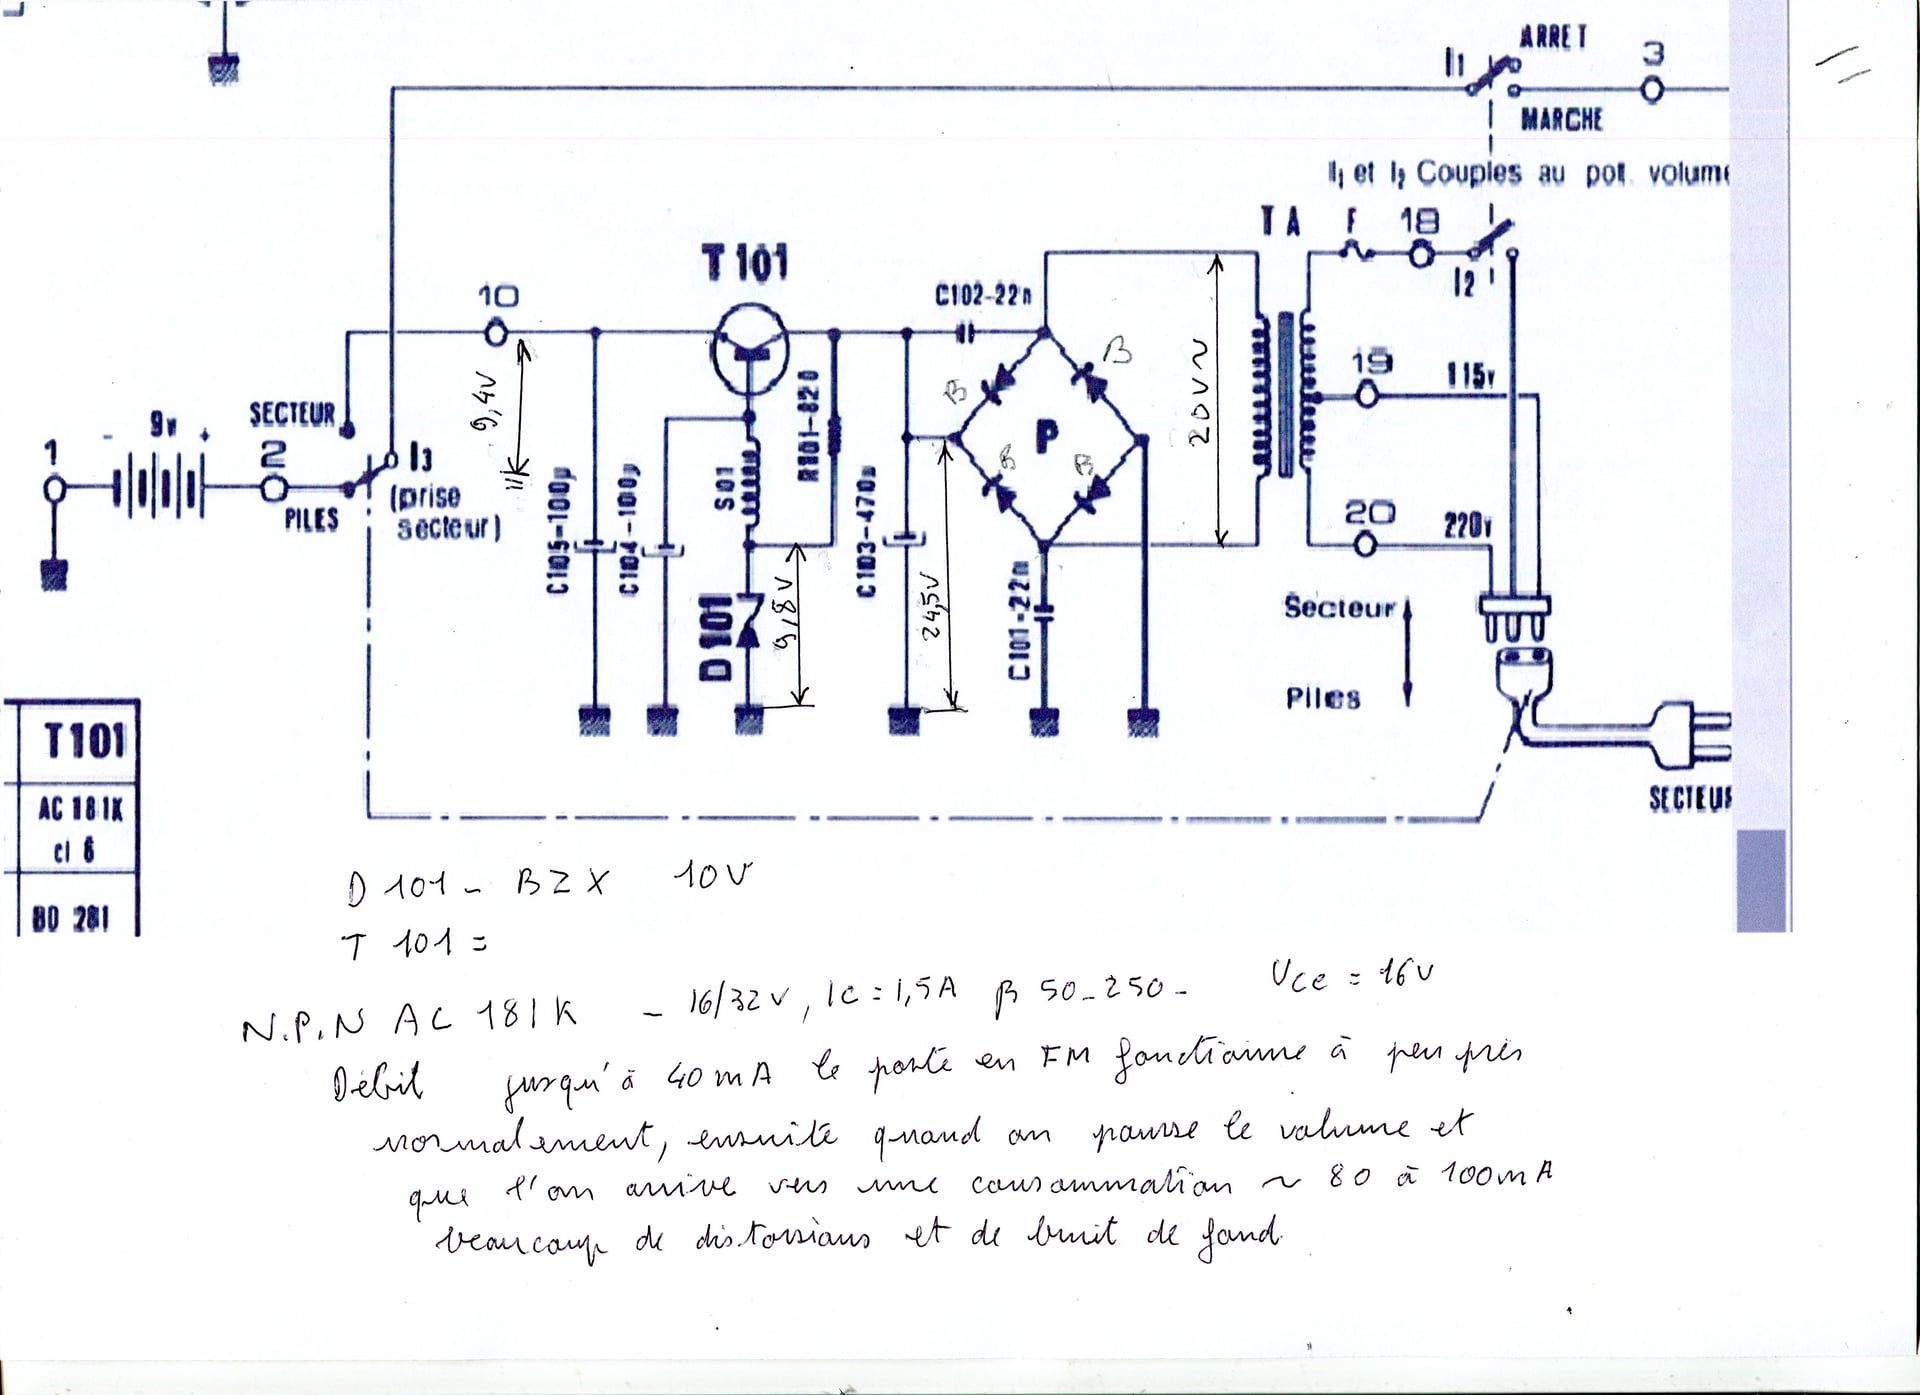 ARRET
I1
3
MARCHE
I1 et I2 Couples au pot. volume
T A
F
18
I2
T 101
C102-22n
10
B
B
20V~
19
115v
9,4V
R101-820
SECTEUR
9v
- +
1
2
I3
(prise
secteur)
PILES
P
B
B
S01
C105-100µ
C104-100µ
C103-470µ
20
220v
D101
9,8V
24,5V
C101-22n
Secteur
Piles
SECTEUR
T101
AC 181K
cl 6
BD 281
D 101 - BZX 10V
T 101 =
N.P.N AC 181K - 16/32V, IC = 1,5A β 50-250- VCE = 16V
Débit jusqu'à 40mA le poste en FM fonctionne à peu près
normalement, ensuite quand on pousse le volume et
que l'on arrive vers une consommation ~ 80 à 100mA
beaucoup de distorsions et de bruit de fond.